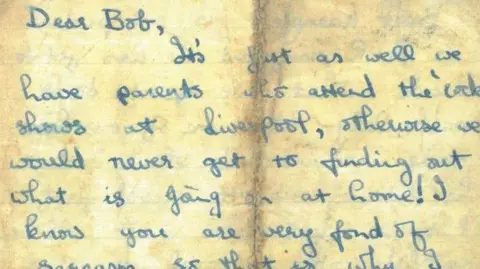 Dear Bob,
It's just as well we
have parents who attend the 'cock
shows at Liverpool, otherwise we
would never get to finding out
what is going on at home! I
know you are very fond of
sarcasm so that is why I